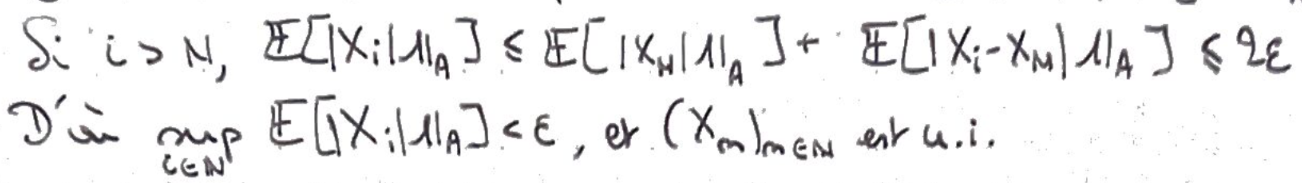 Si i > N, 𝔼[|X_i|𝟙_A] ≤ 𝔼[|X_N|𝟙_A] + 𝔼[|X_i - X_N|𝟙_A] ≤ 2ε
D'où sup_{i∈ℕ} 𝔼[|X_i|𝟙_A] < ε, et (X_n)_{n∈ℕ} est u.i.